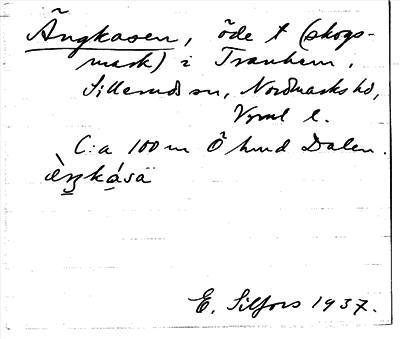 Ängkasen, öde t (skogs-
mark) i Tranhem,
Sillerud sn, Nordmarks hd,
Vrml l.
C:a 100 m Ö hmd Dalen.
E. Silfors 1937.